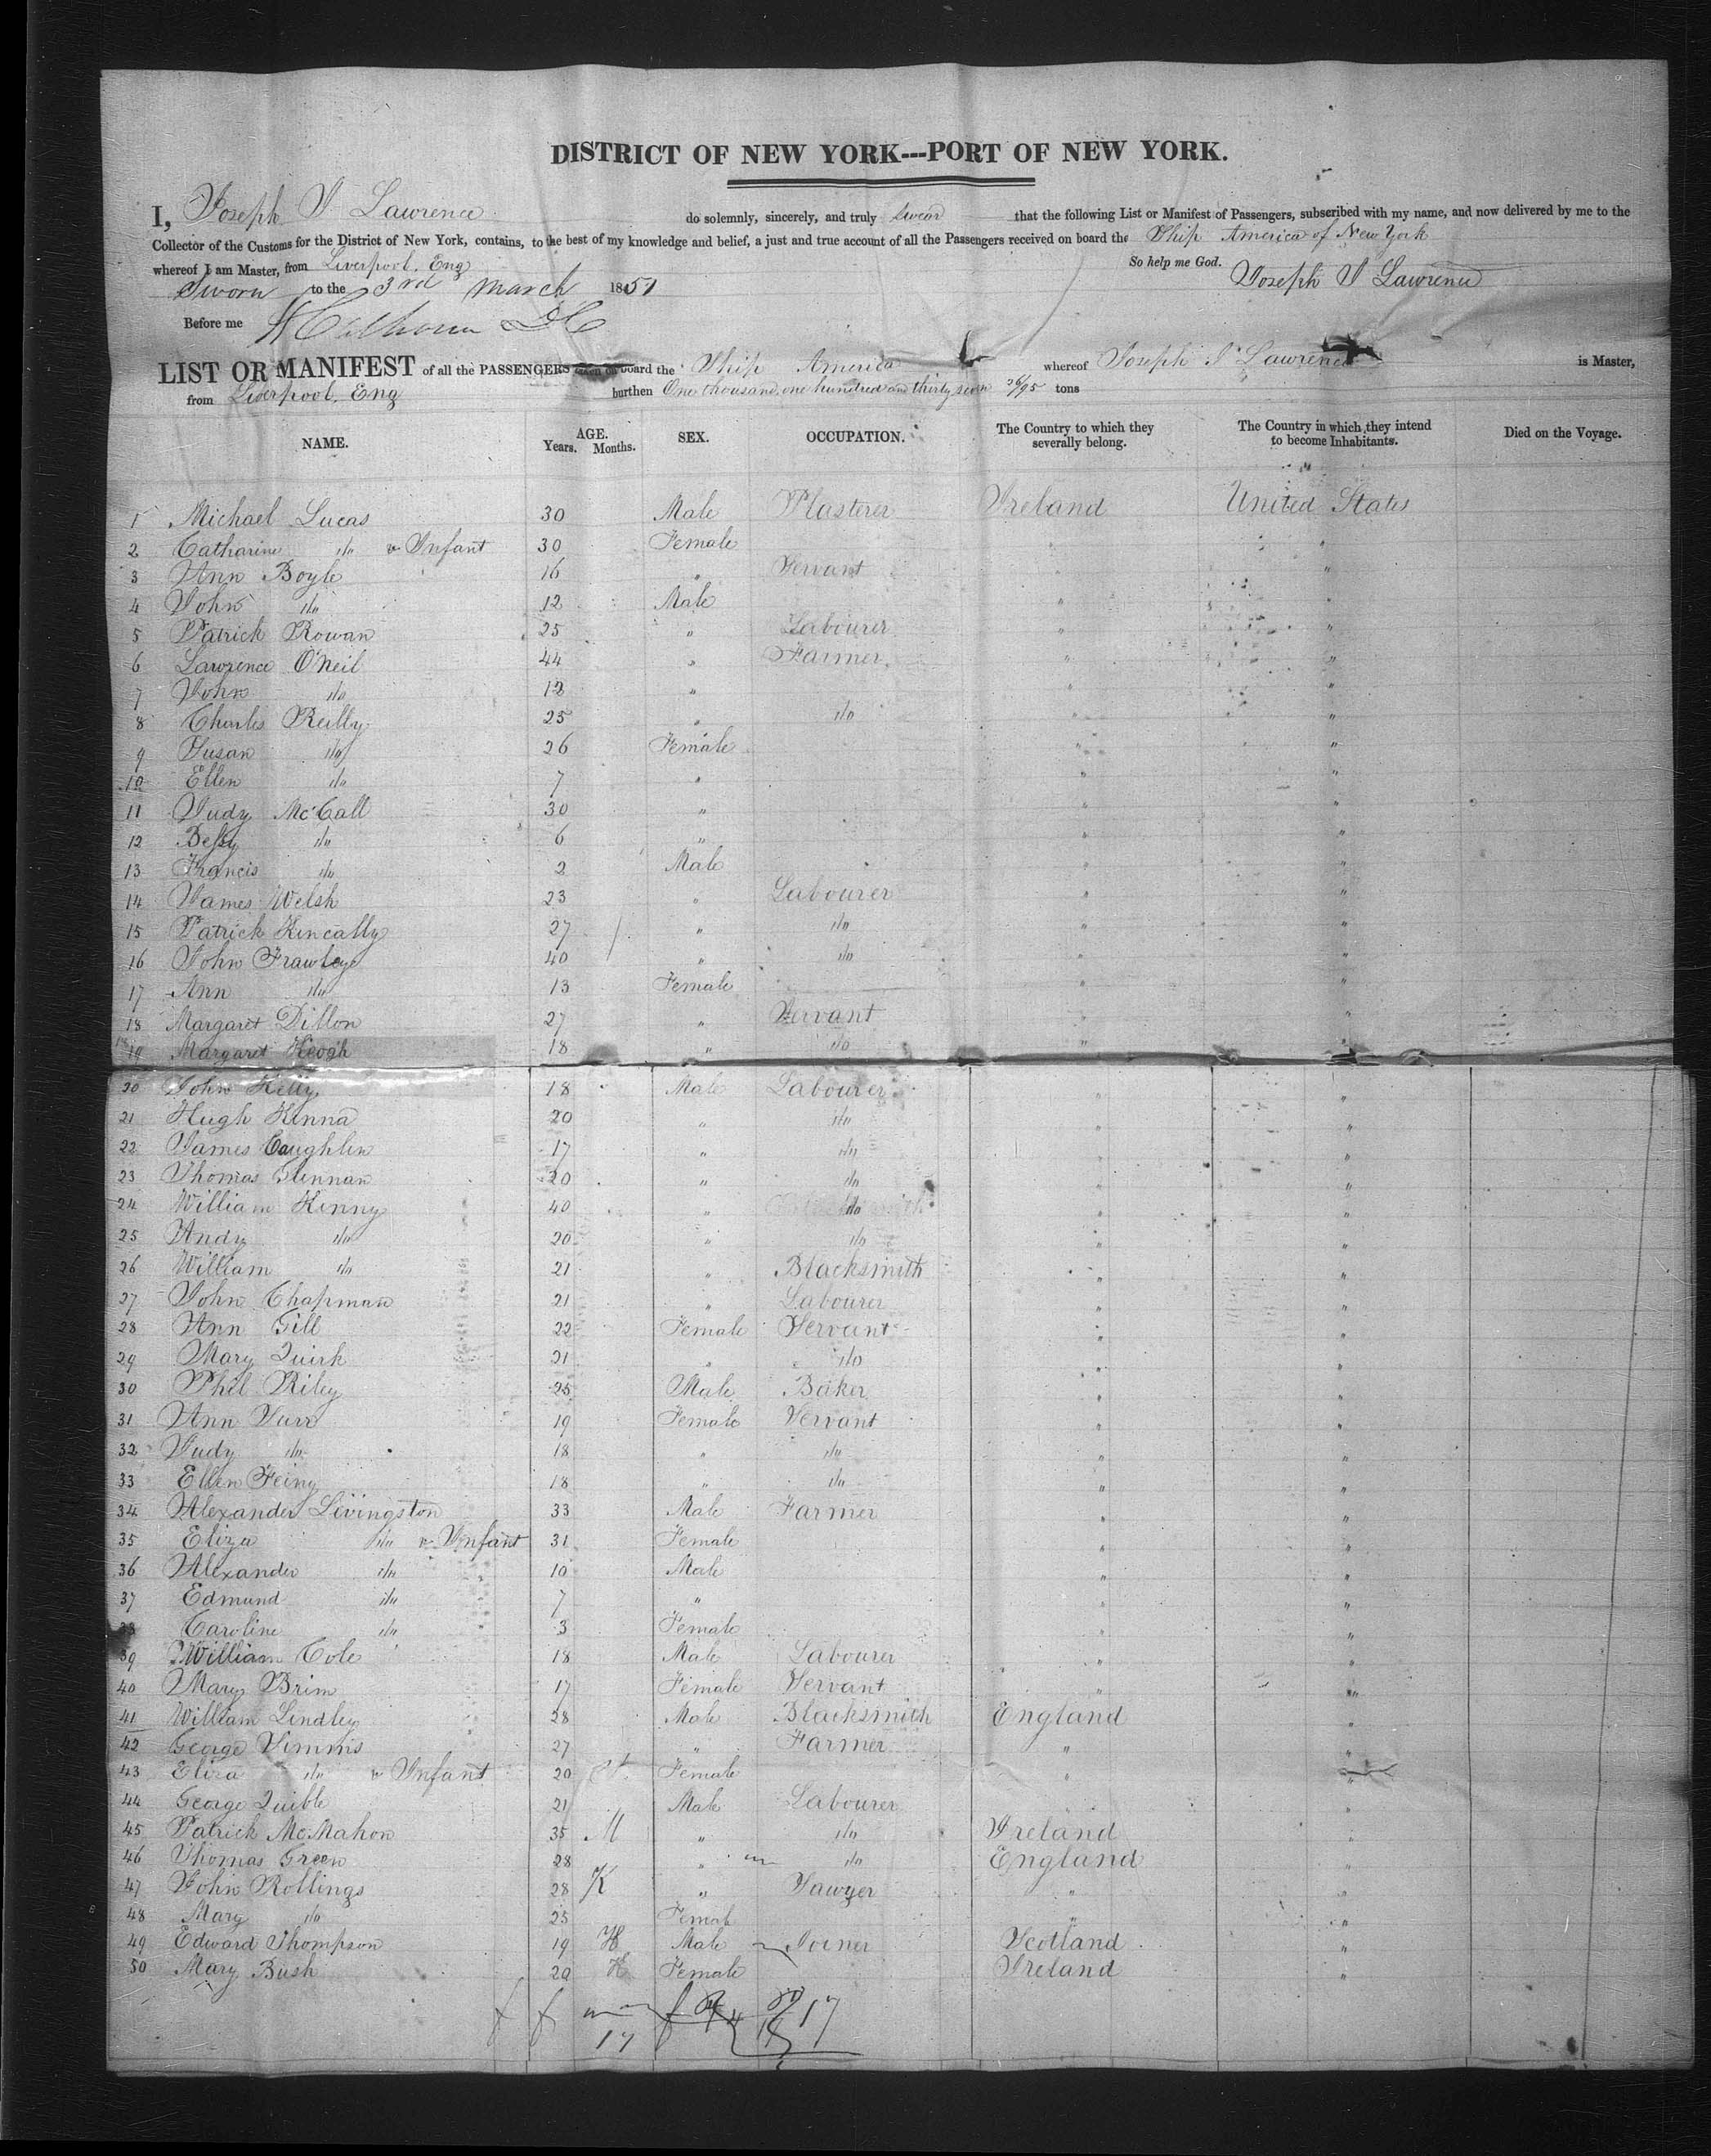 DISTRICT OF NEW YORK---PORT OF NEW YORK.
I, Joseph J Lawrence do solemnly, sincerely, and truly swear that the following List or Manifest of Passengers, subscribed with my name, and now delivered by me to the
Collector of the Customs for the District of New York, contains, to the best of my knowledge and belief, a just and true account of all the Passengers received on board the Ship America of New York
whereof I am Master, from Liverpool. Eng So help me God. Joseph J Lawrence
Sworn to the 3rd March 1851
Before me Calhoun
LIST OR MANIFEST of all the PASSENGERS taken on board the Ship America whereof Joseph J Lawrence is Master,
from Liverpool. Eng burthen One thousand, one hundred and thirty seven 26/95 tons
NAME. AGE. Years. Months. SEX. OCCUPATION. The Country to which they severally belong. The Country in which they intend to become Inhabitants. Died on the Voyage.
1 Michael Lucas 30 Male Plasterer Ireland United States
2 Catharine do & Infant 30 Female " "
3 Ann Boyle 16 " Servant " "
4 John do 12 Male " "
5 Patrick Rowan 25 " Labourer " "
6 Lawrence O'Neil 44 " Farmer " "
7 John do 12 " " "
8 Charles Reilly 25 " do " "
9 Susan do 26 Female " "
10 Ellen do 7 " " "
11 Judy McCall 30 " " "
12 Bessy do 6 " " "
13 Francis do 2 Male " "
14 James Welsh 23 " Labourer " "
15 Patrick Kincally 27 " do " "
16 John Frawley 40 " do " "
17 Ann do 13 Female " "
18 Margaret Dillon 27 " Servant " "
19 Margaret Keogh 18 " do " "
20 John Kelly 18 Male Labourer " "
21 Hugh Kinna 20 " do " "
22 James Coughlin 17 " do " "
23 Thomas Glennan 20 " do " "
24 William Kinny 40 " do " "
25 Andy do 20 " do " "
26 William do 21 " Blacksmith " "
27 John Chapman 21 " Labourer " "
28 Ann Gill 22 Female Servant " "
29 Mary Quirk 21 " do " "
30 Phil Riley 25 Male Baker " "
31 Ann 19 Female Servant " "
32 Judy do 18 " do " "
33 Ellen Feiny 18 " do " "
34 Alexander Livingston 33 Male Farmer " "
35 Eliza do & Infant 31 Female " "
36 Alexander do 10 Male " "
37 Edmund do 7 " " "
38 Caroline do 3 Female " "
39 William Cole 18 Male Labourer " "
40 Mary Brim 17 Female Servant " "
41 William Lindley 28 Male Blacksmith England "
42 George Simms 27 " Farmer " "
43 Eliza do & Infant 20 Female " "
44 George Quible 21 Male Labourer " "
45 Patrick McMahon 35 M " do Ireland "
46 Thomas Green 28 " do England "
47 John Rollings 28 K " Sawyer " "
48 Mary do 25 Female " "
49 Edward Thompson 19 H Male Joiner Scotland "
50 Mary Bush 20 H Female Ireland "
17
17